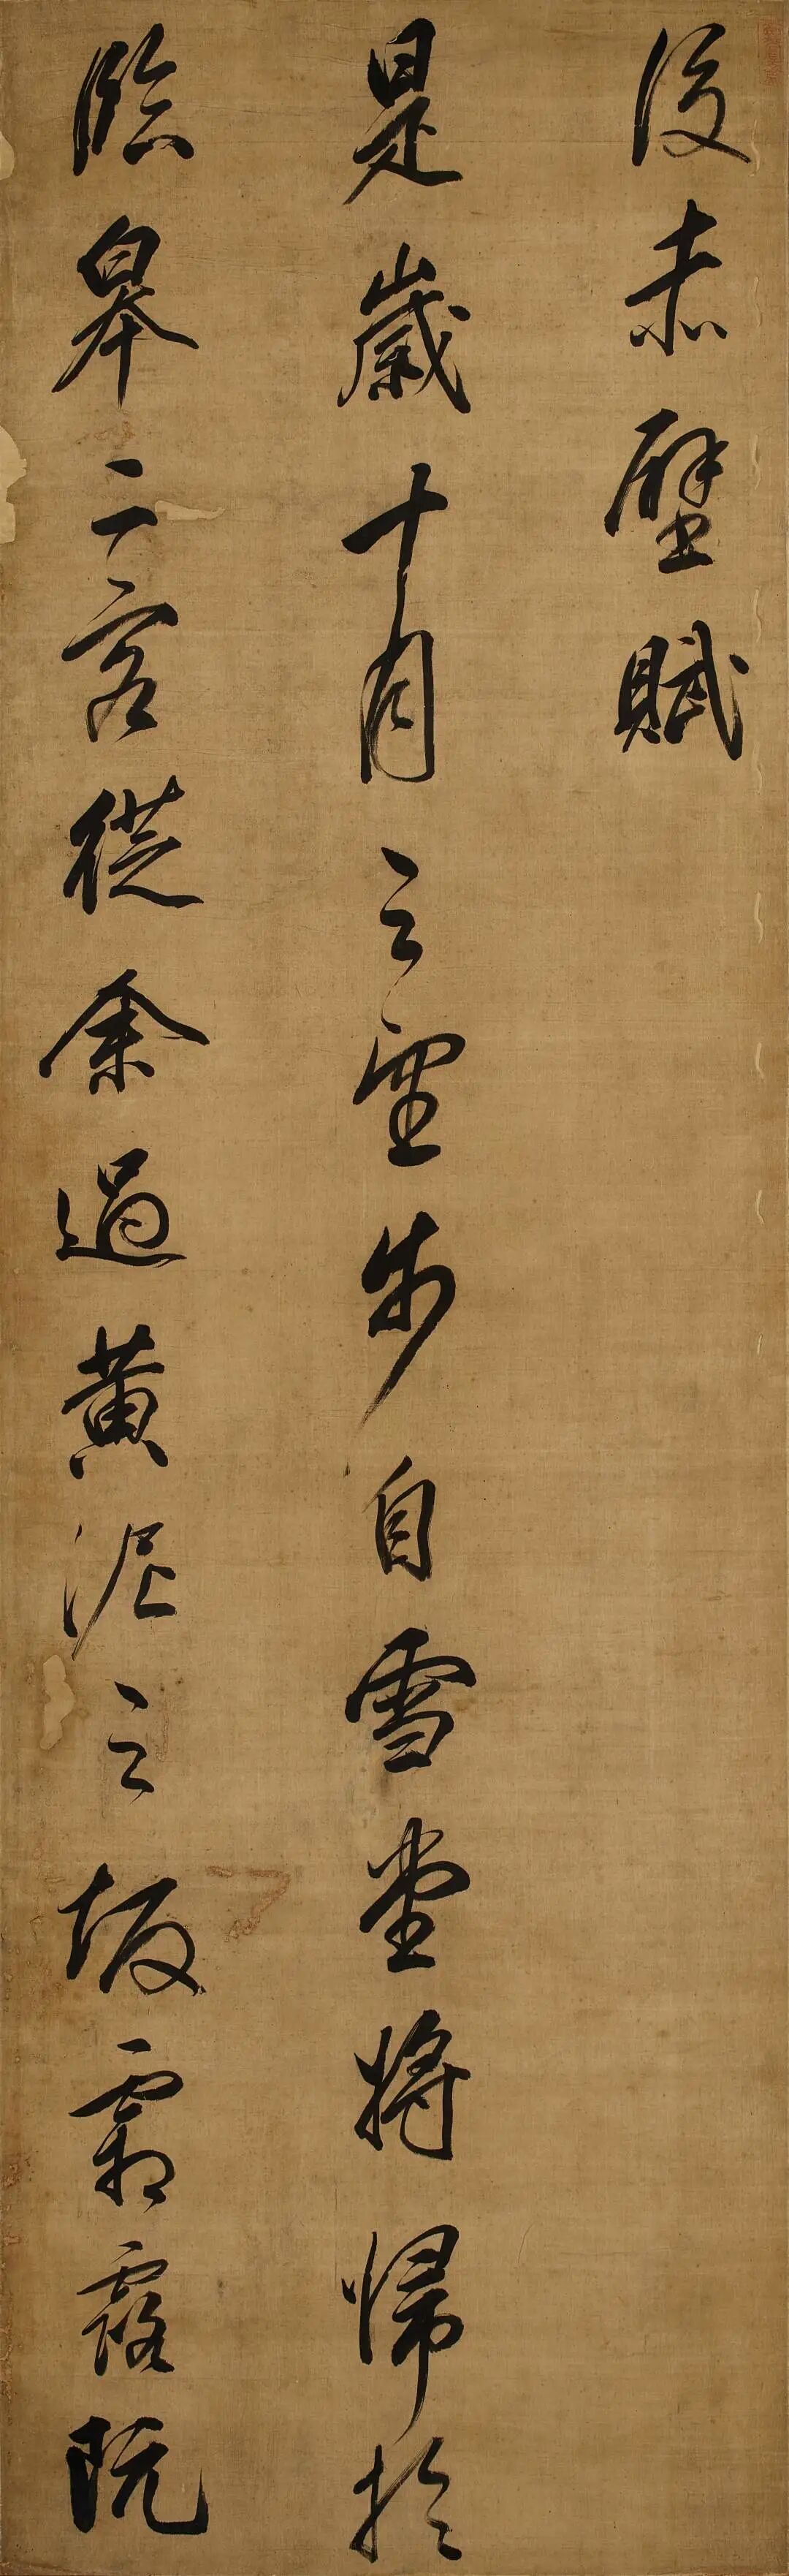 後赤壁賦
是歲十月之望步自雪堂將歸於
臨皋二客從余過黃泥之坂霜露既